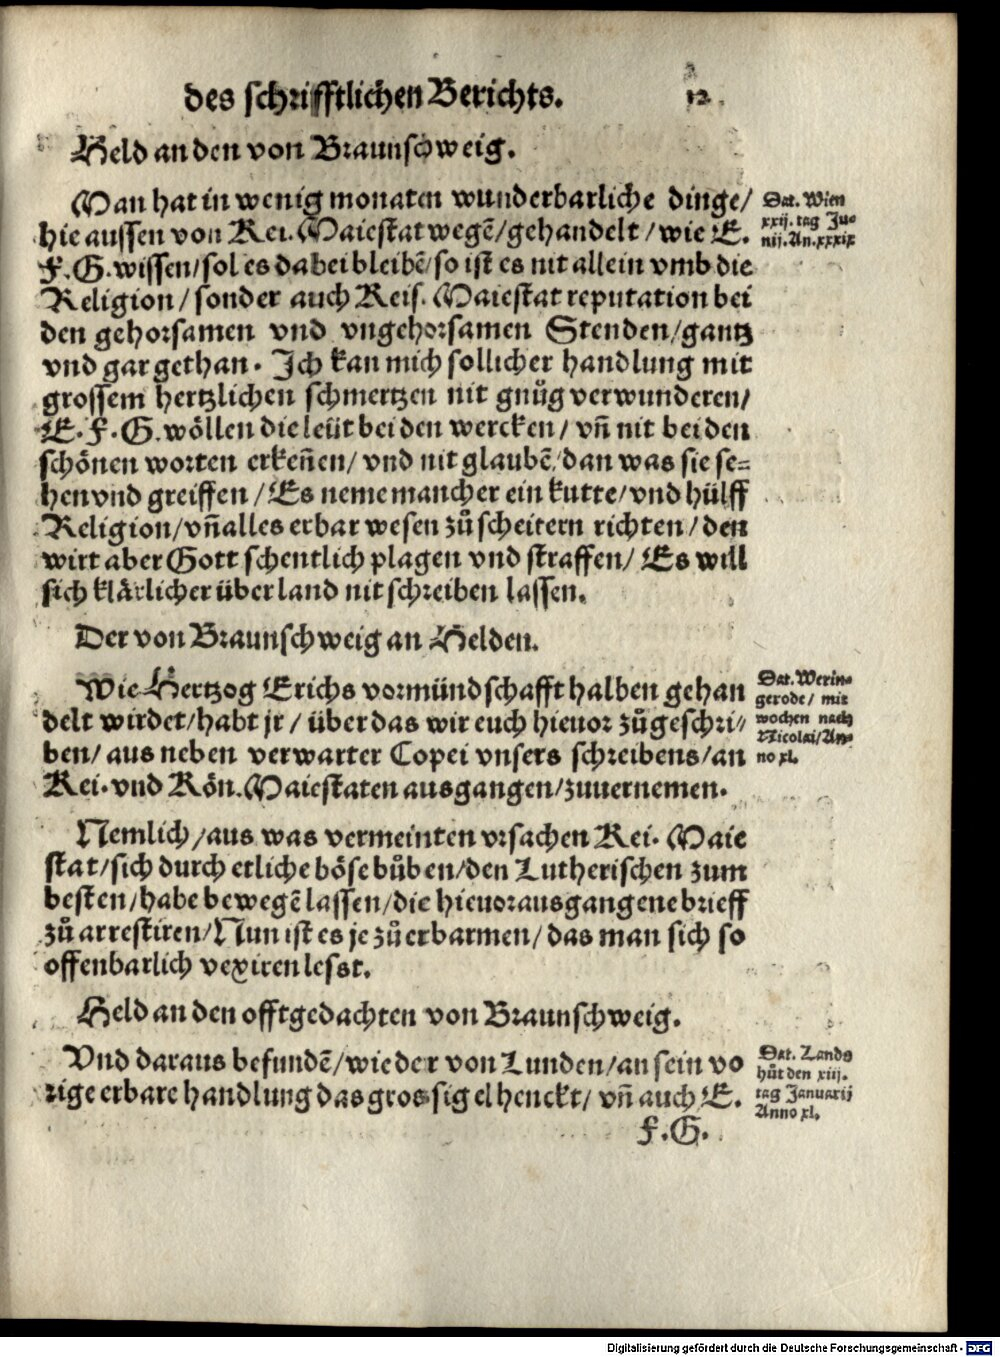 des schrifftlichen Berichts.
12.
Held an den von Braunschweig.
Man hat in wenig monaten wunderbarliche dinge/
hie aussen von Kei. Maiestat wegẽ/gehandelt/wie E.
F. G. wissen/sol es dabei bleibẽ/so ist es nit allein vmb die
Religion/sonder auch Keis. Maiestat reputation bei
den gehorsamen vnd vngehorsamen Stenden/gantz
vnd gar gethan. Ich kan mich sollicher handlung mit
grossem hertzlichen schmertzen nit gnůg verwunderen/
E. F. G. wöllen die leüt bei den wercken/vñ nit bei den
schönen worten erkeñen/vnd nit glaubẽ/dan was sie se=
hen vnd greiffen/Es neme mancher ein kutte/vnd hülff
Religion/vñ alles erbar wesen zů scheitern richten/den
wirt aber Gott schentlich plagen vnd straffen/Es will
sich klärlicher über land nit schreiben lassen.
Dat. Wien
xxij. tag Ju=
nij. An. xxxix
Der von Braunschweig an Helden.
Wie Hertzog Erichs vormündschafft halben gehan
delt wirdet/habt jr/über das wir euch hieuor zůgeschri/
ben/aus neben verwarter Copei vnsers schreibens/an
Kei. vnd Kön. Maiestaten ausgangen/zuuernemen.
Dat. Werin=
gerode/mit
wochen nach
Nicolai/An=
no xl.
Nemlich/aus was vermeinten vrsachen Kei. Maie
stat/sich durch etliche böse bůben/den Lutherischen zum
besten/habe bewegẽ lassen/die hieuor ausgangene brieff
zů arrestiren/Nun ist es je zů erbarmen/das man sich so
offenbarlich vexiren lesst.
Held an den offtgedachten von Braunschweig.
Vnd daraus befundẽ/wie der von Lunden/an sein vo
rige erbare handlung das gros sigel henckt/vñ auch E.
F. G.
Dat. Lands
hůt den xiij.
tag Januarij
Anno xl.
Digitalisierung gefördert durch die Deutsche Forschungsgemeinschaft - DFG